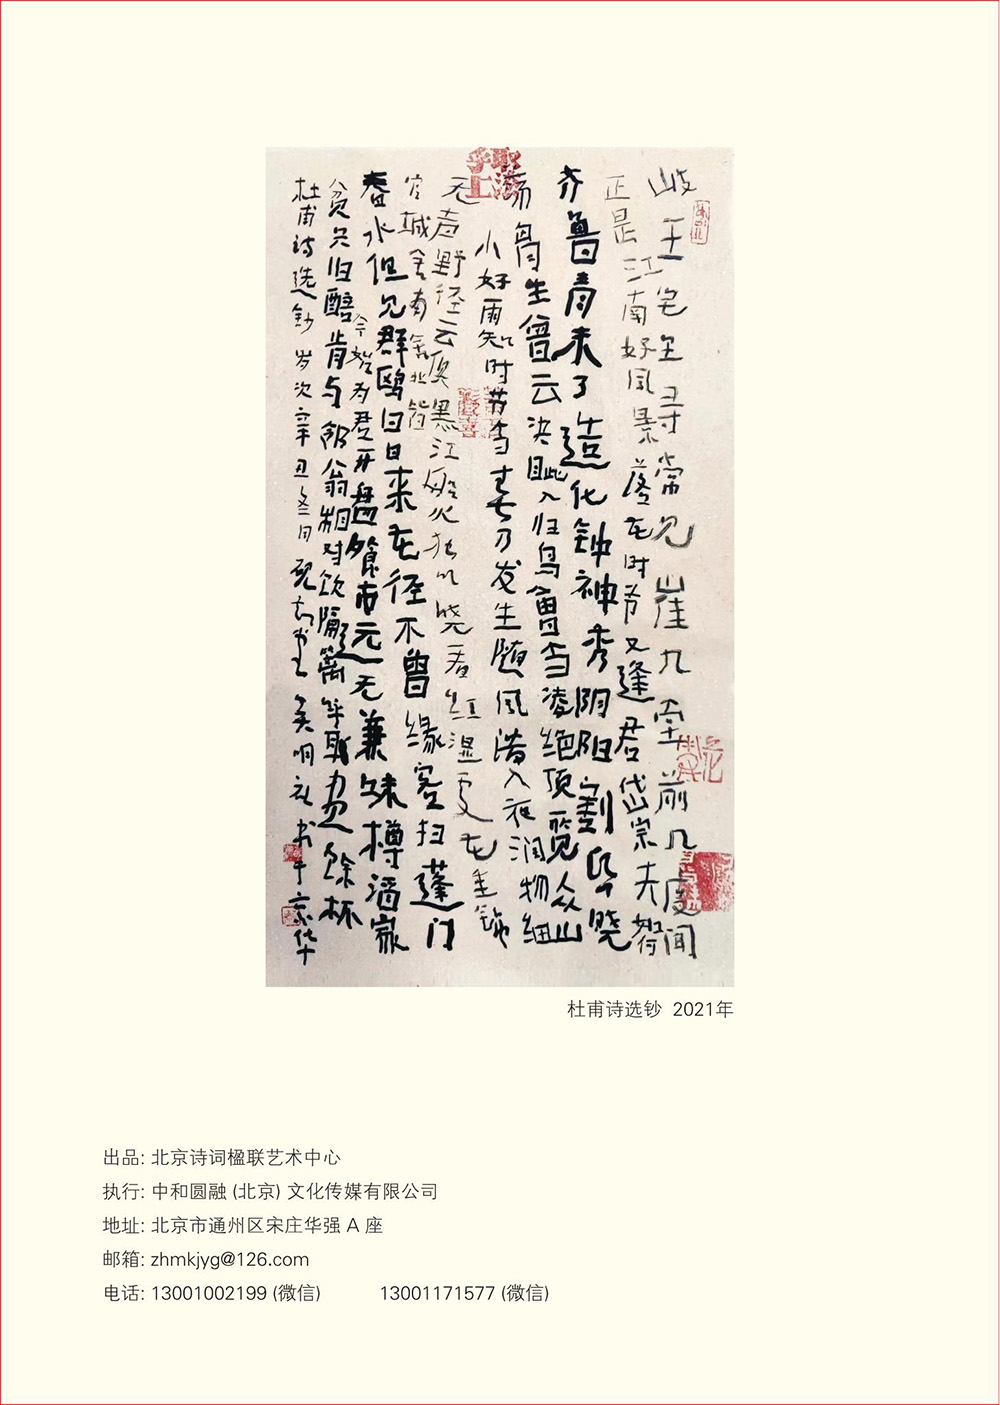 岐王宅里寻常见崔九堂前几度闻
正是江南好风景落花时节又逢君岱宗夫如何
齐鲁青未了造化钟神秀阴阳割昏晓
荡胸生曾云决眦入归鸟会当凌绝顶览众山
小好雨知时节当春乃发生随风潜入夜润物细
无声野径云俱黑江船火独明晓看红湿处花重锦
官城舍南舍北皆
春水但见群鸥日日来花径不曾缘客扫蓬门
今始为君开盘飧市远无兼味樽酒家
贫只旧醅肯与邻翁相对饮隔篱呼取尽馀杯
杜甫诗选钞 岁次辛丑冬月 书于京华
杜甫诗选钞 2021年
出品: 北京诗词楹联艺术中心
执行: 中和圆融 (北京) 文化传媒有限公司
地址: 北京市通州区宋庄华强 A 座
邮箱: zhmkjyg@126.com
电话: 13001002199 (微信) 13001171577 (微信)